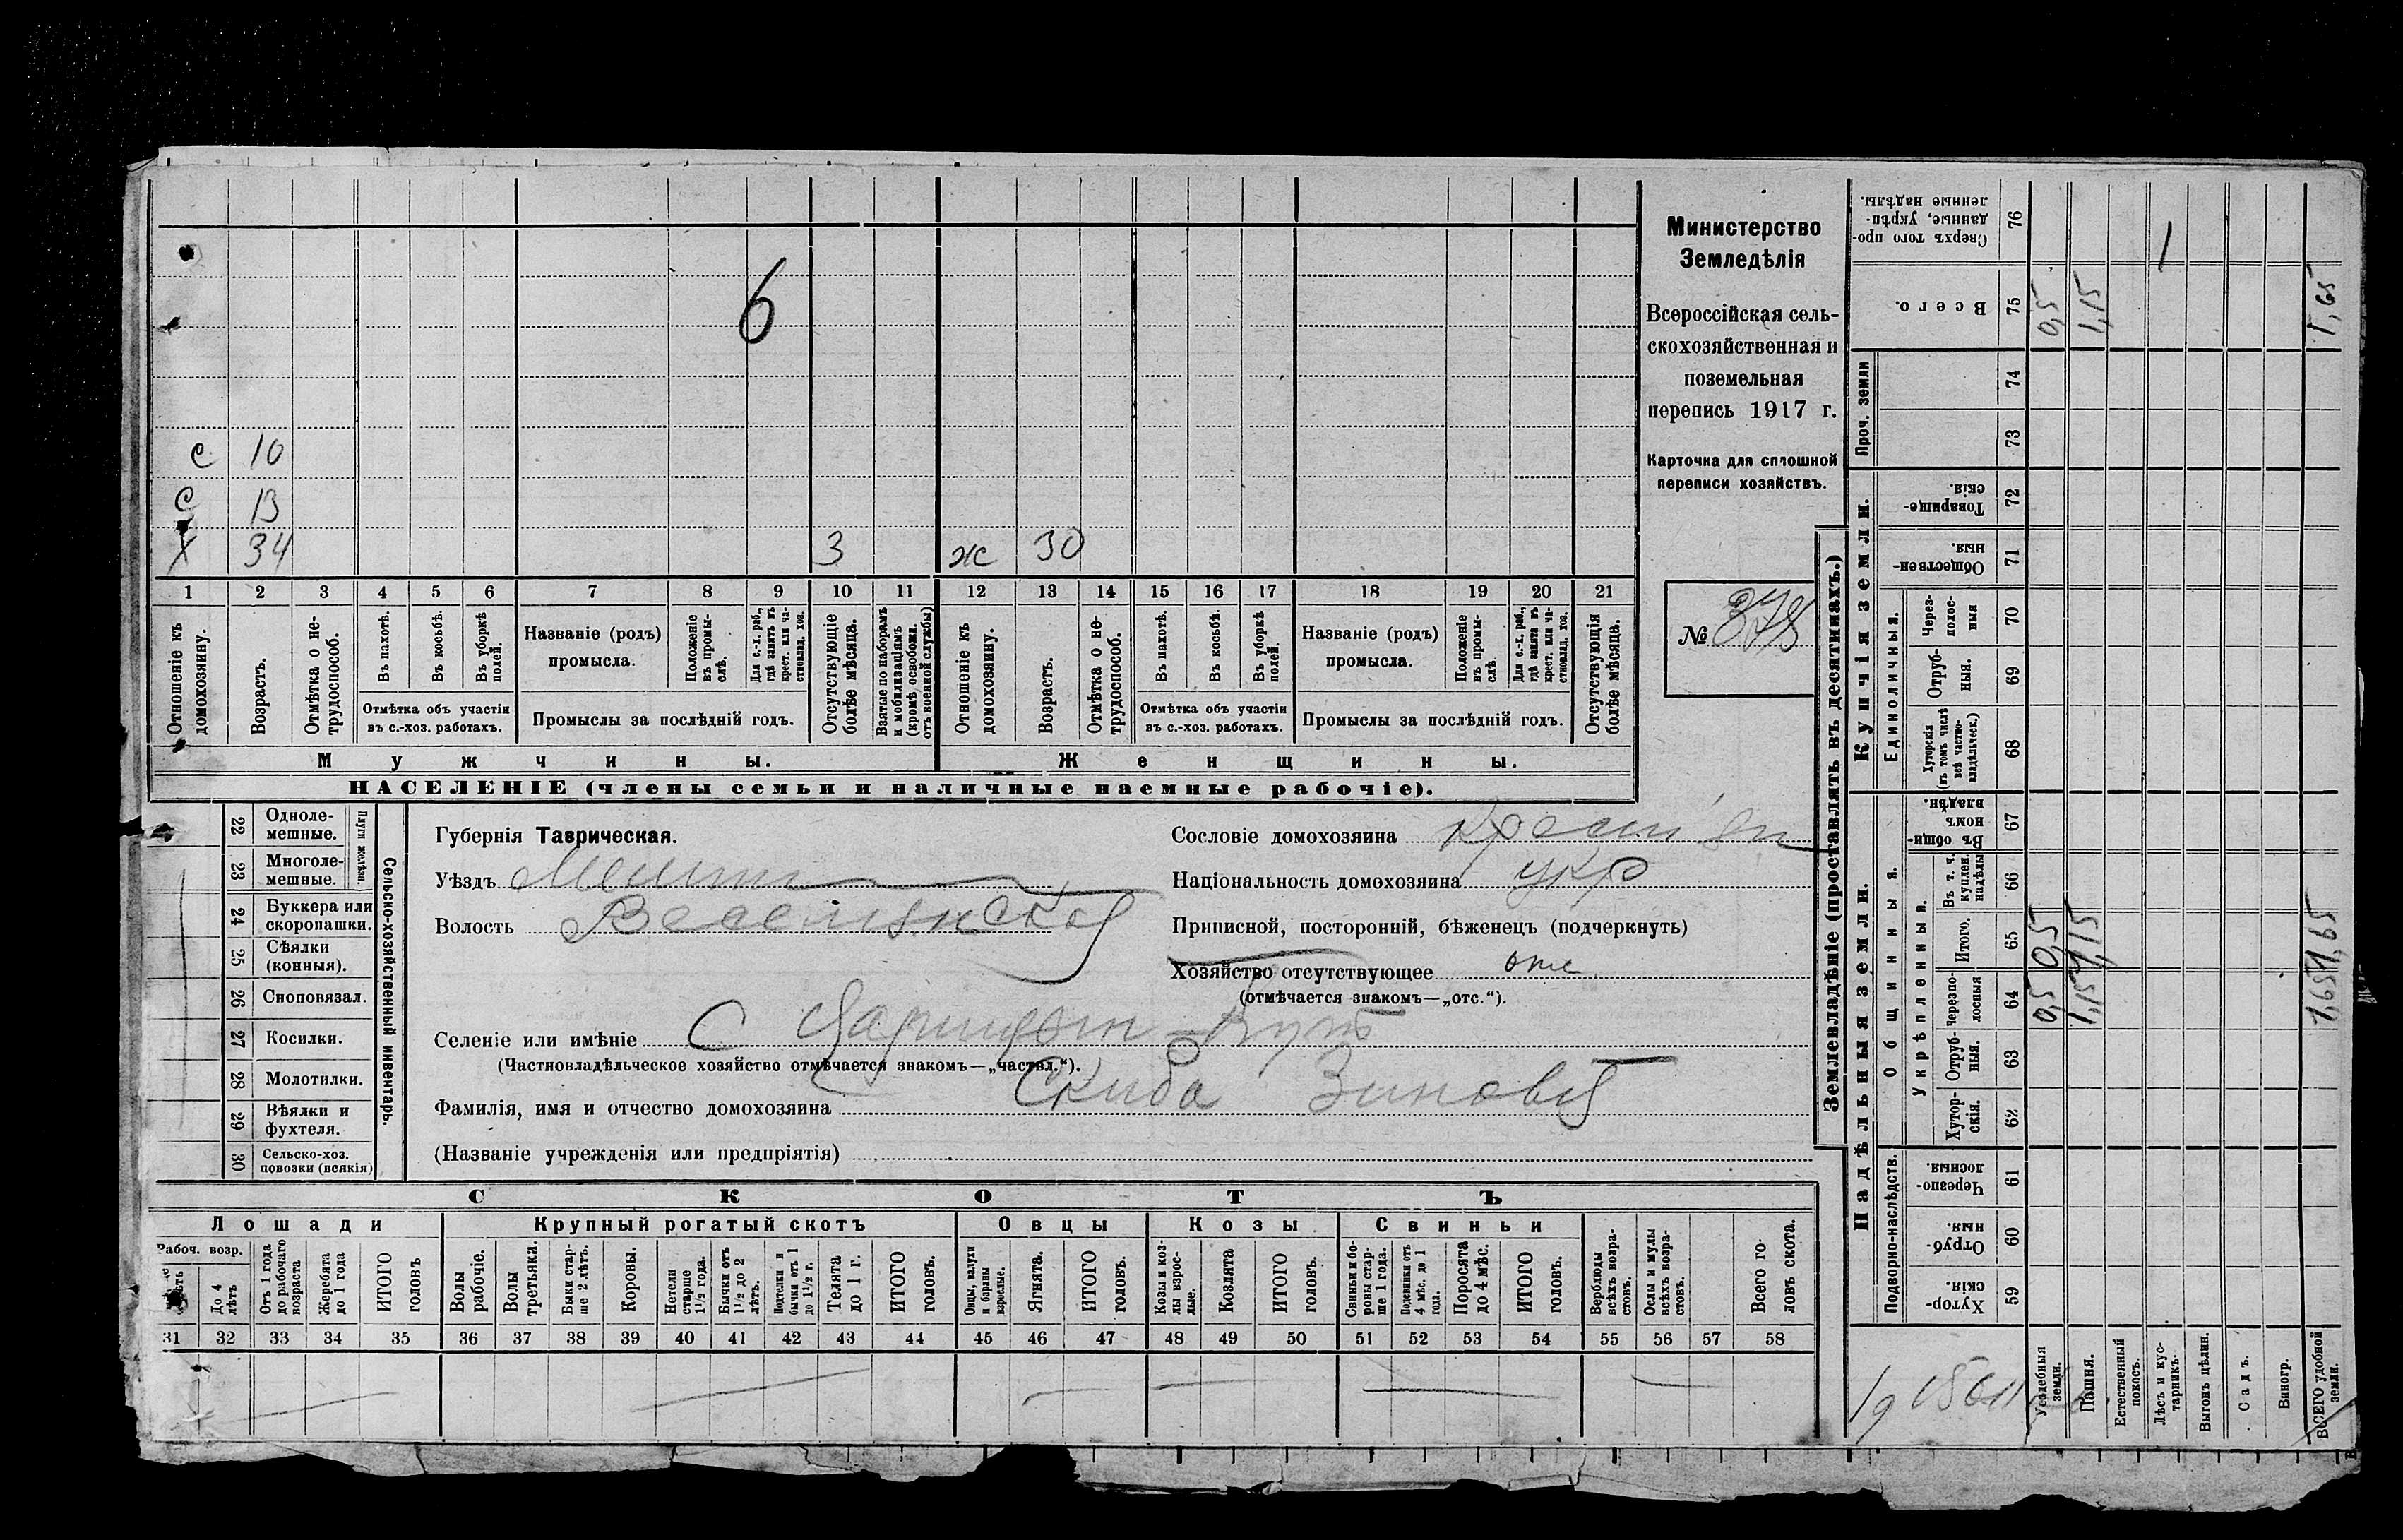 6
с 10
с 13
х 34 3 ж 30
1 2 3 4 5 6 7 8 9 10 11 12 13 14 15 16 17 18 19 20 21
Отношеніе къ домохозяину.
Возрастъ.
Отмѣтка о не-трудоспособ.
Въ пахотѣ.
Въ косьбѣ.
Въ уборкѣ полей.
Отмѣтка объ участіи
въ с.-хоз. работахъ.
Названіе (родъ)
промысла.
Положеніе въ промы-слѣ.
Для с.-х. раб., гдѣ занятъ въ крест. или ча-стновлад. хоз.
Промыслы за послѣдній годъ.
Отсутствующіе болѣе мѣсяца.
Взятые по наборамъ и мобилизаціямъ (кромѣ освобожн. отъ военной службы)
Отношеніе къ домохозяину.
Возрастъ.
Отмѣтка о не-трудоспособ.
Въ пахотѣ.
Въ косьбѣ.
Въ уборкѣ полей.
Отмѣтка объ участіи
въ с.-хоз. работахъ.
Названіе (родъ)
промысла.
Положеніе въ промы-слѣ.
Для с.-х. раб., гдѣ занята въ крест. или ча-стновлад. хоз.
Промыслы за послѣдній годъ.
Отсутствующія болѣе мѣсяца.
Мужчины. Женщины.
НАСЕЛЕНІЕ (члены семьи и наличные наемные рабочіе).
Министерство
Земледѣлія
Всероссійская сель-
скохозяйственная и
поземельная
перепись 1917 г.
Карточка для сплошной
переписи хозяйствъ.
№ 378
22 Одноле-мешные.
23 Многоле-мешные.
Плуги желѣзн.
24 Буккера или скоропашки.
25 Сѣялки (конныя).
26 Сноповязал.
27 Косилки.
28 Молотилки.
29 Вѣялки и фухтеля.
30 Сельско-хоз. повозки (всякія)
Сельско-хозяйственный инвентарь.
Губернія Таврическая.
Уѣздъ Мелит
Волость Веселянской
Селеніе или имѣніе С Царицын-Кутъ
(Частновладѣльческое хозяйство отмѣчается знакомъ—„частвл.“).
Фамилія, имя и отчество домохозяина Скиба Зиновій
(Названіе учрежденія или предпріятія)
Сословіе домохозяина Крестьян
Національность домохозяина укр
Приписной, посторонній, бѣженец (подчеркнуть)
Хозяйство отсутствующее отс
(отмѣчается знакомъ—„отс.“).
СКОТЪ
Лошади Крупный рогатый скотъ Овцы Козы Свиньи
Рабоч. возр.
До 4 лѣтъ
Отъ 1 года до рабочаго возраста
Жеребята до 1 года
ИТОГО головъ
Волы рабочіе.
Волы третьяки.
Быки стар-ше 2 лѣтъ.
Коровы.
Нетели старше 1½ года.
Бычки отъ 1½ до 2 лѣтъ.
Подтелки и бычки отъ 1 до 1½ г.
Телята до 1 г.
ИТОГО головъ.
Овцы, валухи и бараны взрослые.
Ягнята.
ИТОГО головъ.
Козы и коз-лы взрос-лые.
Козлята
ИТОГО головъ.
Свиньи и бо-ровы стар-ше 1 года.
Подсвинки отъ 4 мѣс. до 1 года.
Поросята до 4 мѣс.
ИТОГО головъ.
Верблюды всѣхъ возра-стовъ.
Ослы и мулы всѣхъ возра-стовъ.
Всего го-ловъ скота.
31 32 33 34 35 36 37 38 39 40 41 42 43 44 45 46 47 48 49 50 51 52 53 54 55 56 57 58
Землевладѣніе (проставлять въ десятинахъ.)
Надѣльныя земли. Купчія земли. Проч. земли
Подворно-наслѣдств.
Общинныя.
Укрѣпленныя.
Единоличныя.
Хутор-скія. 59
Отруб-ныя. 60
Черезпо-лосныя. 61
Хутор-скія. 62
Отруб-ныя. 63
Черезпо-лосныя 64
Итого. 65
Въ т. ч. куплен. надѣлы 66
Въ общи-номъ владѣн. 67
Хуторскія (въ томъ числѣ всѣ частно-владѣльческ.) 68
Отруб-ныя. 69
Через-полос-ныя 70
Обществен-ныя. 71
Товарище-скія. 72
73
74
Всего. 75
Сверхъ того про-данные, укрѣп-ленные надѣлы. 76
Усадебныя земли. 0,5 0,5 0,5
Пашня. 1,15 1,15 1,15
Естественный покосъ.
Лѣсъ и кус-тарникъ.
Выгонъ цѣлин.
Садъ.
Виногр.
ВСЕГО удобной земли. 1,65 1,65 1,65
1